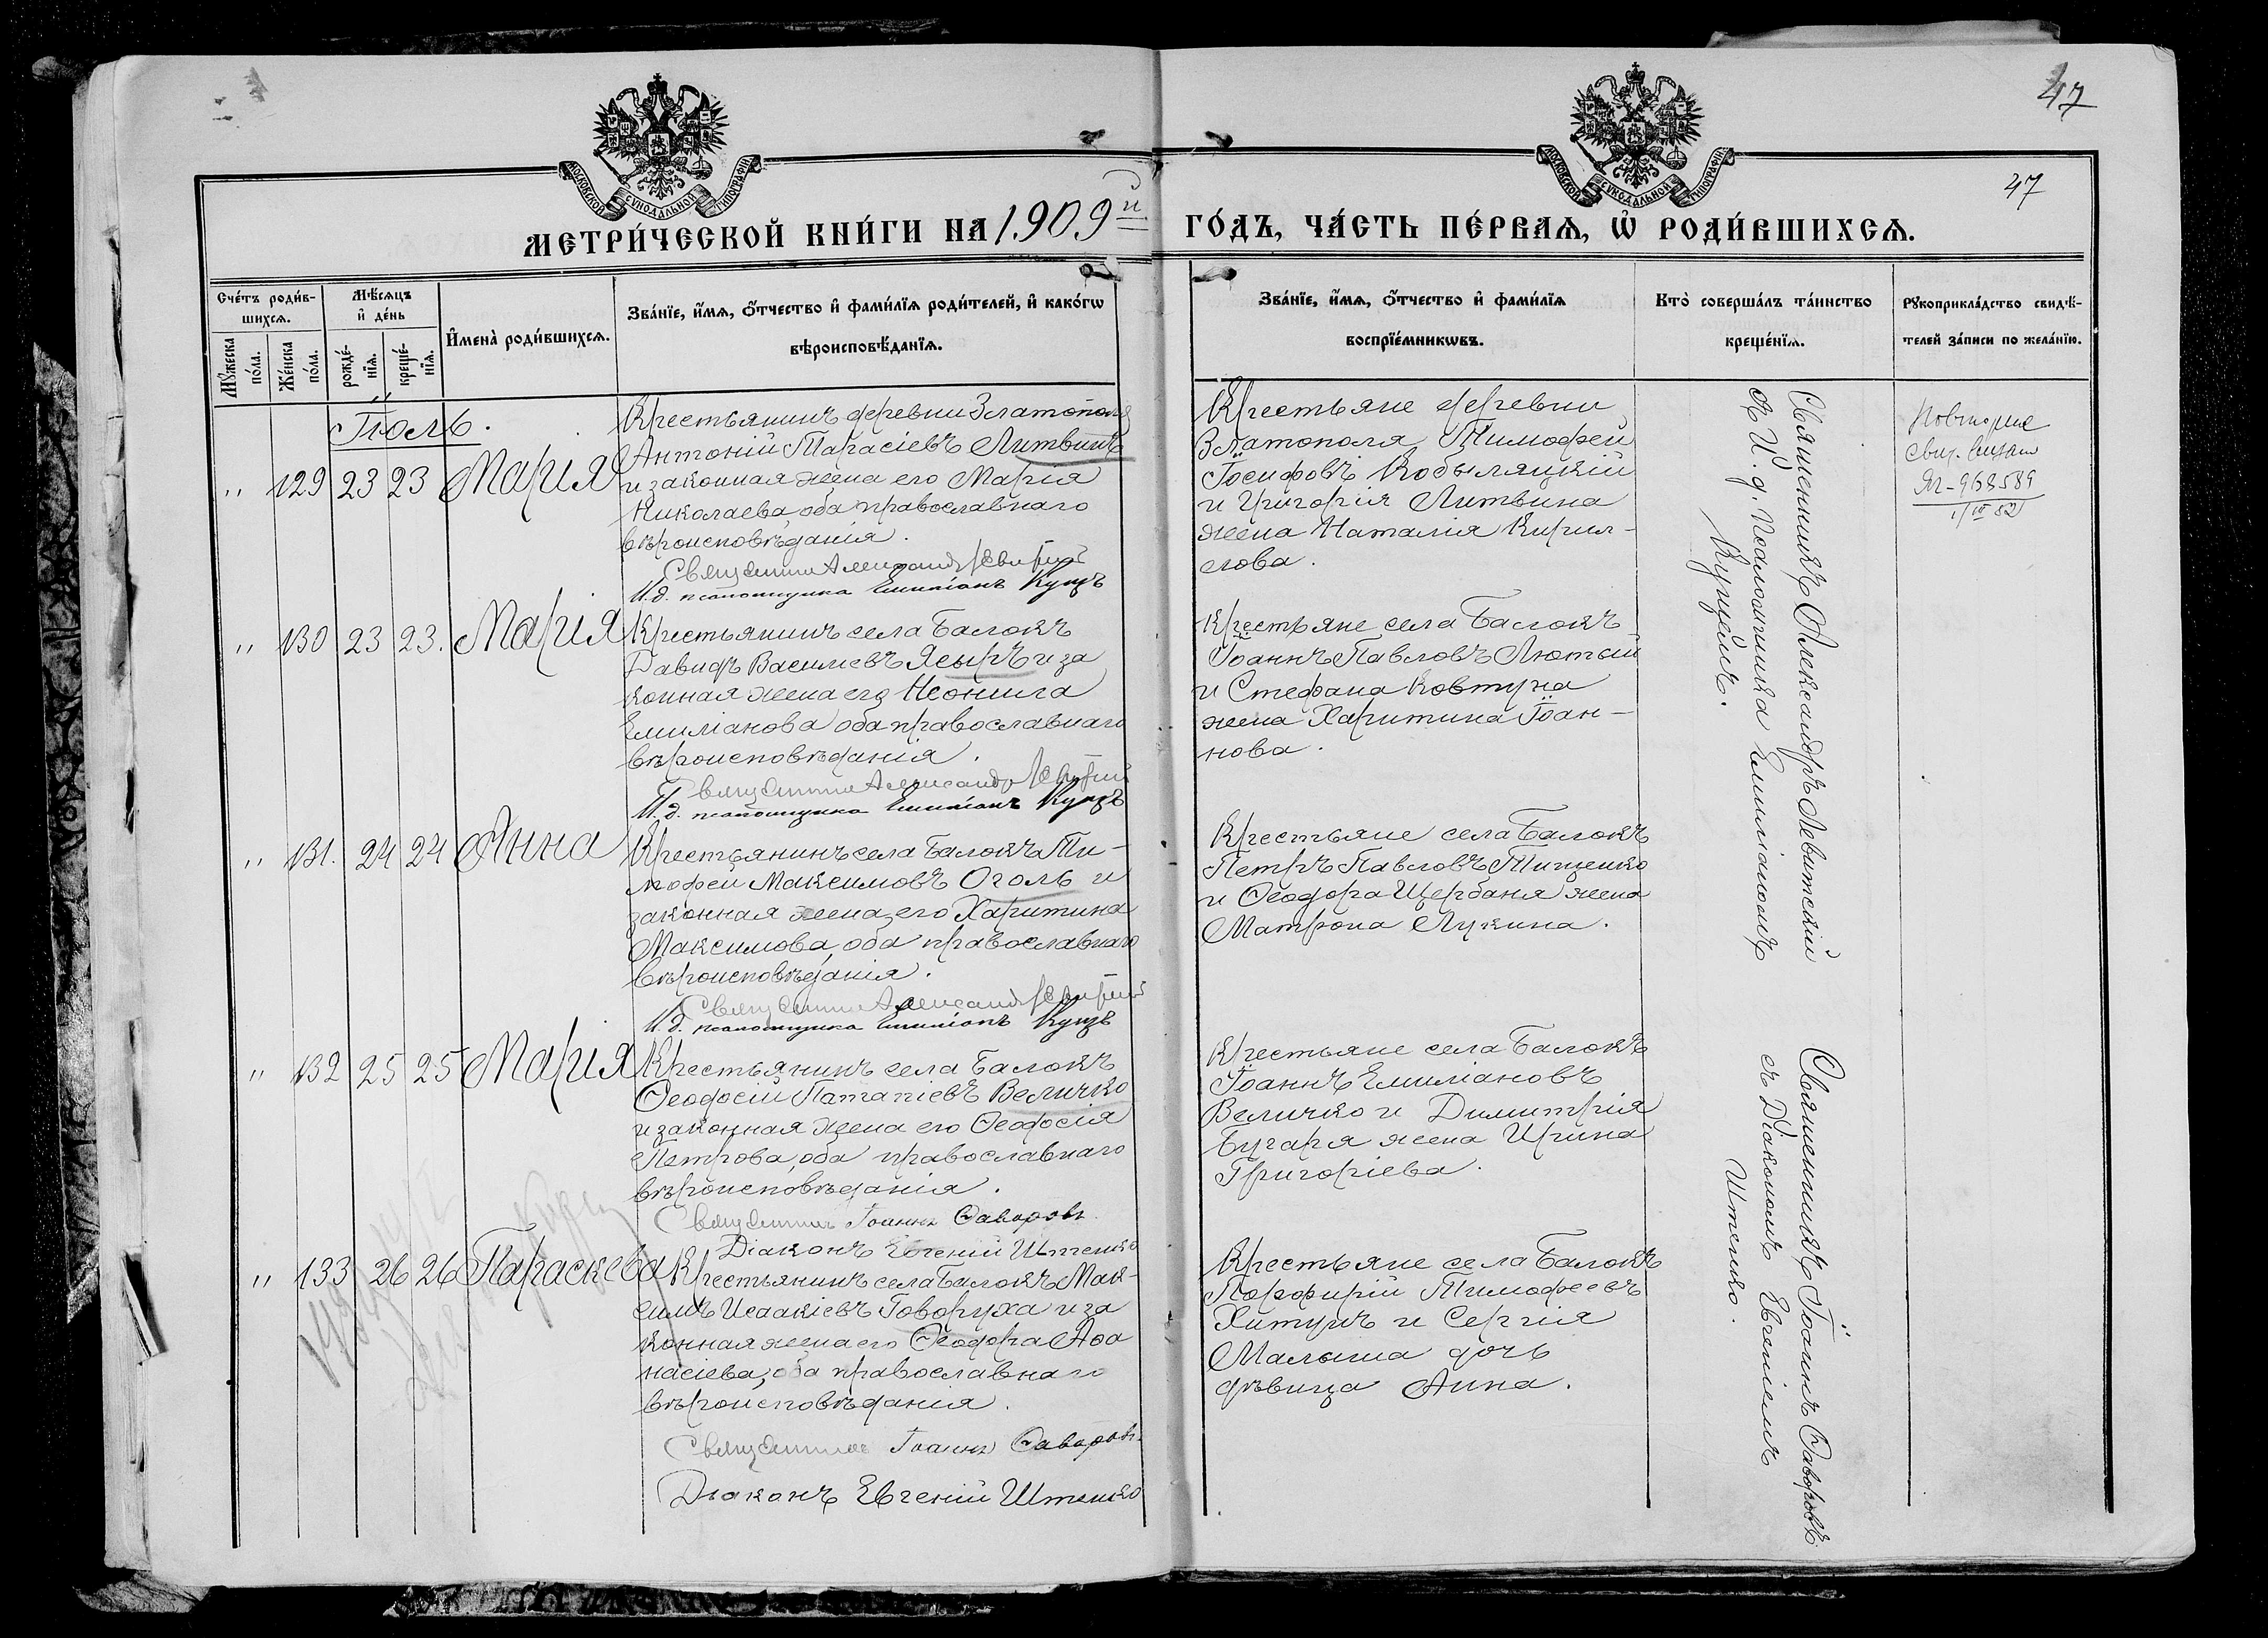 47
47
МОСКОВСКОЙ СѴНОДАЛЬНОЙ ТИПОГРАФІИ
МОСКОВСКОЙ СѴНОДАЛЬНОЙ ТИПОГРАФІИ
МЕТРИ́ЧЕСКОЙ КНИ́ГИ НА 1909й ГО́ДЪ, ЧА́СТЬ ПЕ́РВАѦ, Ѡ҆ РОДИ́ВШИХСѦ.
Сче́тъ роди́в-
шихсѧ.
Мꙋ́жеска
по́ла.
Же́нска
по́ла.
Мѣ́сѧцъ
и҆ де́нь
рожде́-
нїѧ.
креще́-
нїѧ.
И҆мена̀ роди́вшихсѧ.
Зва́нїе, и҆́мѧ, ѻ҆́тчество и҆ фами́лїѧ роди́телей, и҆ како́гѡ
вѣроисповѣ́данїѧ.
Зва́нїе, и҆́мѧ, ѻ҆́тчество и҆ фами́лїѧ
воспрїе́мникѡвъ.
Кто̀ соверша́лъ та́инство
креще́нїѧ.
Рꙋкоприкла́дство свидѣ́-
телей за́писи по жела́нїю.
Іюль.
" 129 23 23 Марія
Крестьянинъ деревни Златополя
Антоній Тарасіевъ Литвинъ
и законная жена его Марія
Николаева, оба православнаго
вѣроисповѣданія.
Священникъ Александръ Левитскій
И.д. псаломщика Емиліанъ Куцъ
Крестьяне деревни
Златополя Тимофей
Іосифовъ Кобыляцкій
и Григорія Литвина
жена Наталія Кирил-
лова.
Священникъ Александръ Левитскій
съ И.д. Псаломщика Емиліаномъ
Куцемъ.
Повторне
Яг-968589
" 130 23 23. Марія
Крестьянинъ села Балокъ
Давидъ Василіевъ Ясыръ и за
конная жена его Неонила
Емиліанова оба православнаго
вѣроисповѣданія.
Священникъ Александръ Левитскій
И.д. псаломщика Емиліанъ Куцъ
Крестьяне села Балокъ
Іоаннъ Павловъ Лютый
и Стефана Ковтуна
жена Харитина Іоан-
нова.
" 131. 24 24 Анна
Крестьянинъ села Балокъ Ти-
мофей Максимовъ Оголь и
законная жена его Харитина
Максимова, оба православнаго
вѣроисповѣданія.
Священникъ Александръ Левитскій
И.д. псаломщика Емиліанъ Куцъ
Крестьяне села Балокъ
Петръ Павловъ Тищенко
и Ѳеодора Щербаня жена
Матрона Лукина.
" 132 25 25 Марія
Крестьянинъ села Балокъ
Ѳеодосій Патапіевъ Величко
и законная жена его Ѳеодосія
Петрова, оба православнаго
вѣроисповѣданія.
Священникъ Іоаннъ Ѳаворовъ
Діаконъ Евгеній Штенко
Крестьяне села Балокъ
Іоаннъ Емиліановъ
Величко и Димитрія
Бугаря жена Ирина
Григоріева.
Священникъ Іоаннъ Ѳаворовъ
съ Діакономъ Евгеніемъ
Штенко.
" 133 26 26 Параскева
Крестьянинъ села Балокъ Мак-
симъ Исаакіевъ Говоруха и за
конная жена его Ѳеодора Аѳа
насіева, оба православнаго
вѣроисповѣданія.
Священникъ Іоаннъ Ѳаворовъ
Діаконъ Евгеній Штенко
Крестьяне села Балокъ
Порфирій Тимофеевъ
Хитунъ и Сергія
Малыша дочь
дѣвица Анна.